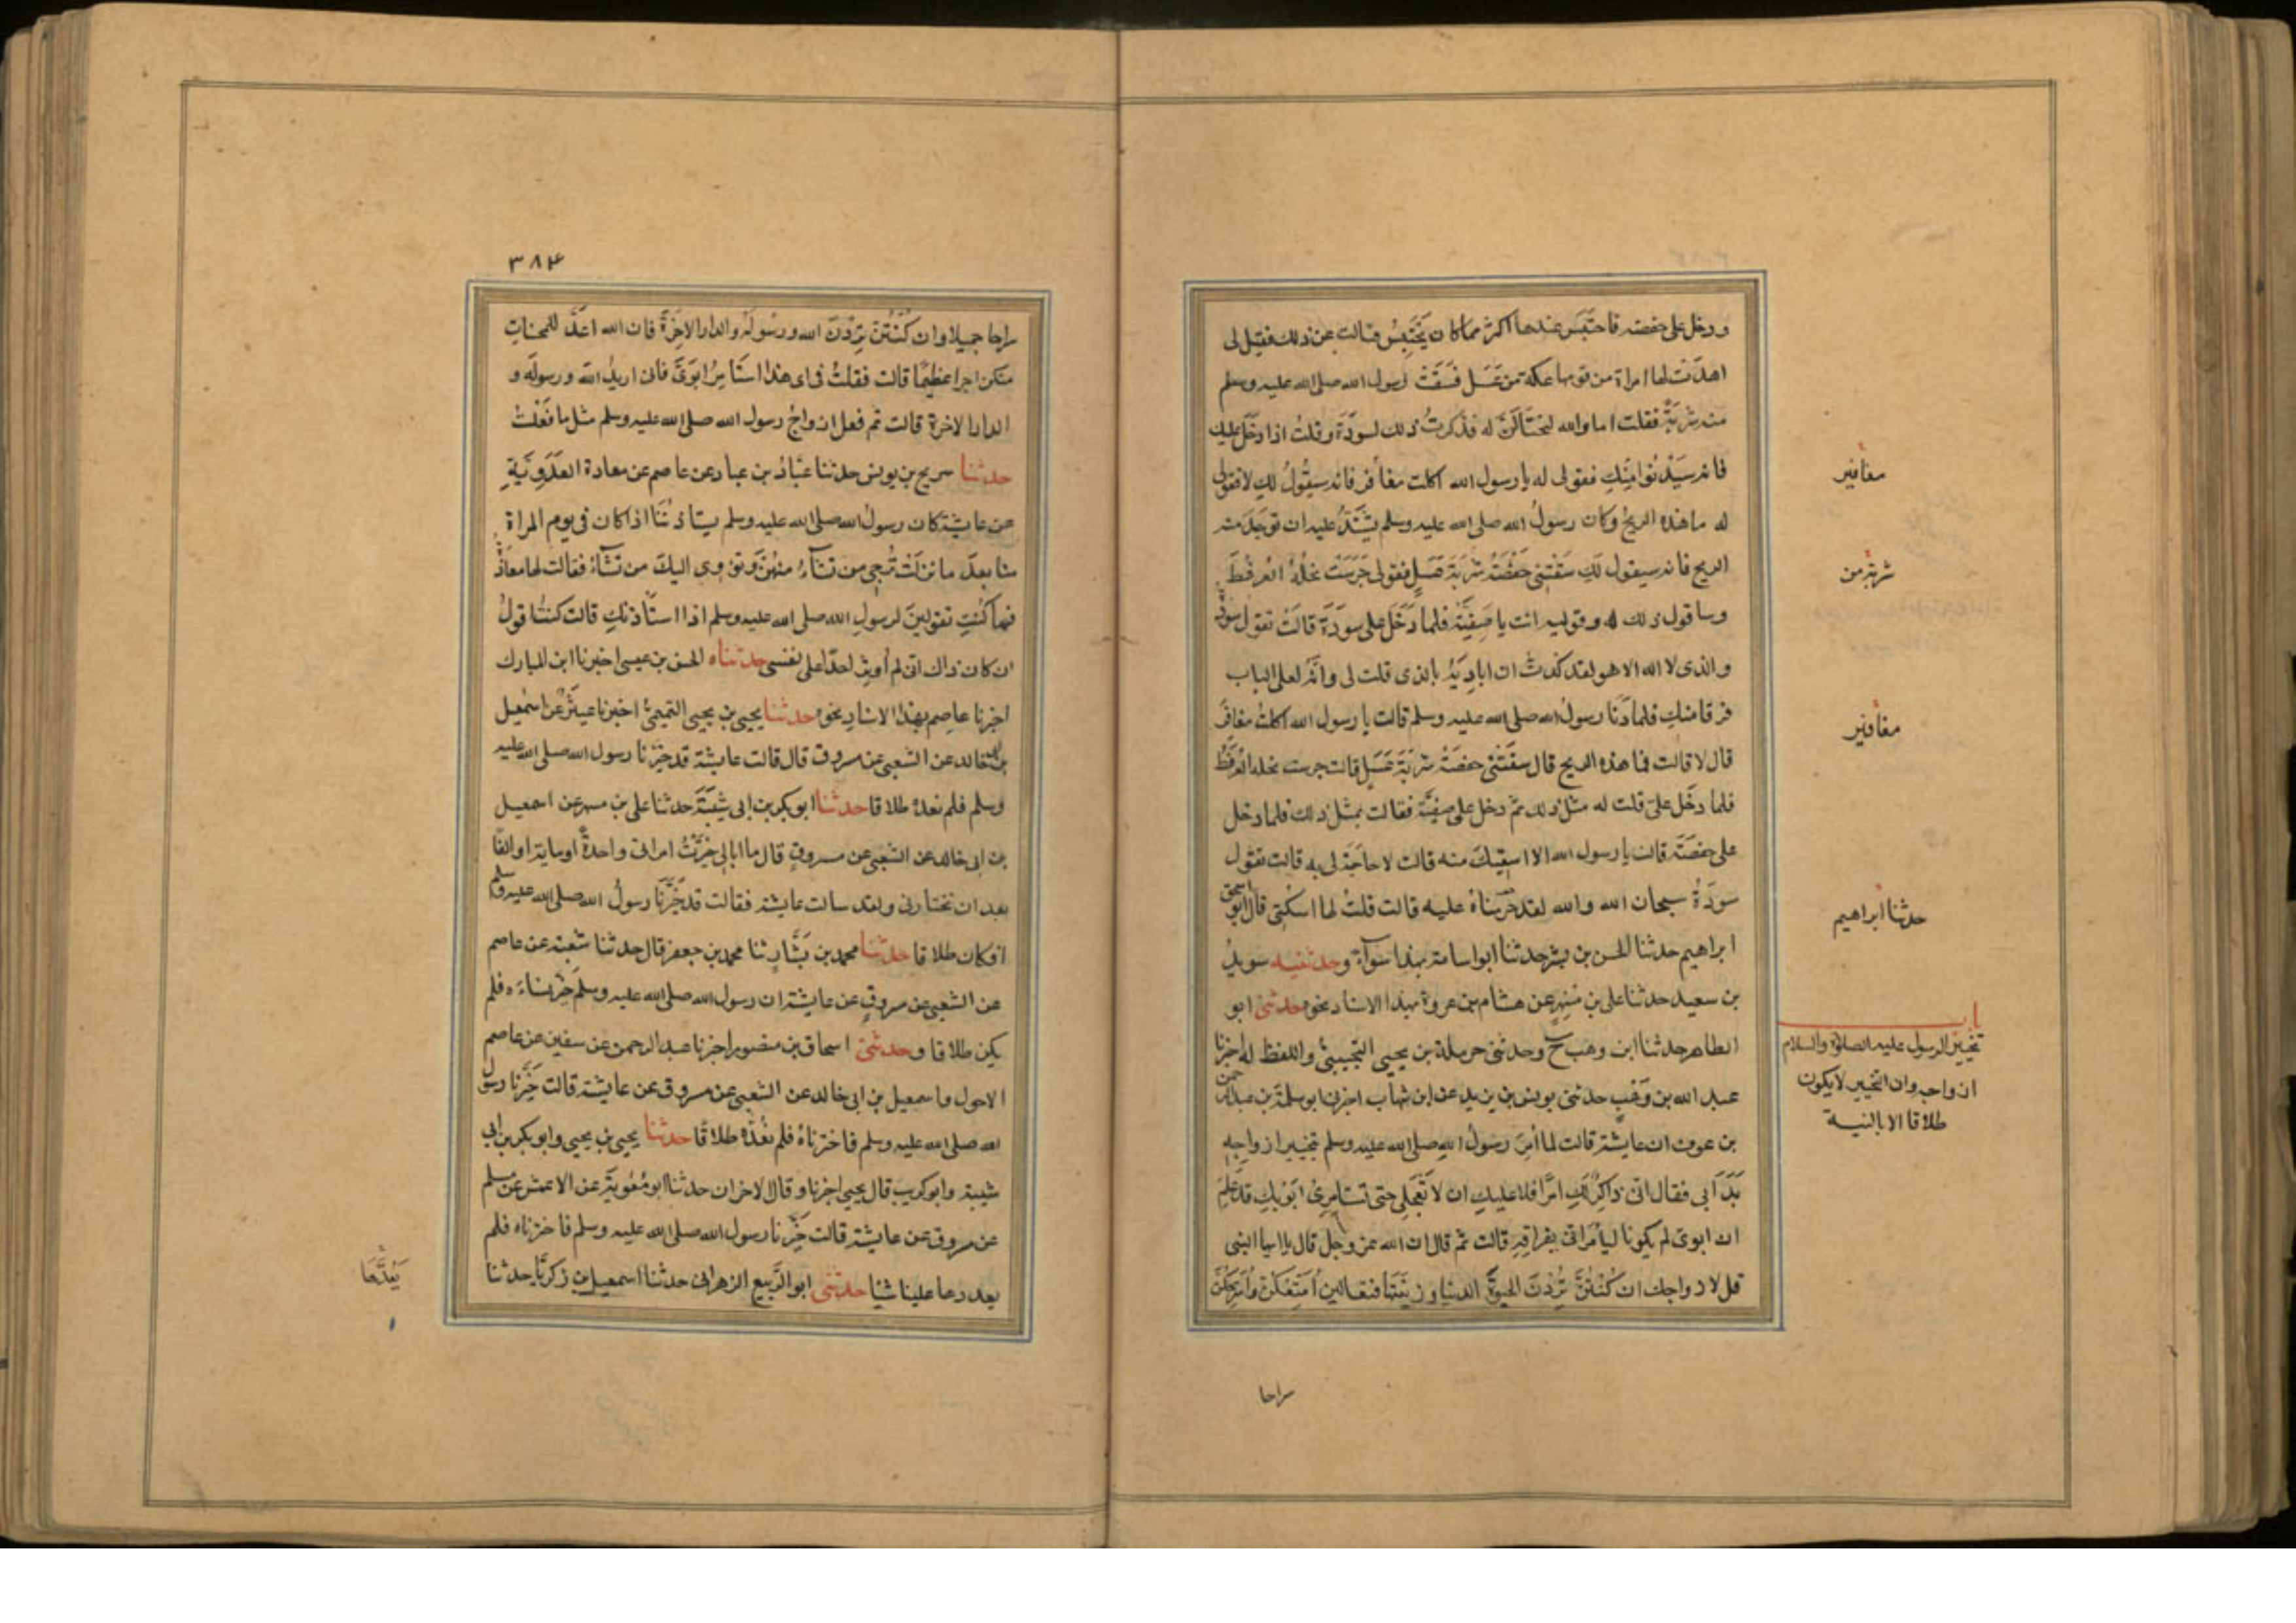 ودخل على حفصة فاحتَبَس عندها اكثر مما كان يَحْتَبِسُ فسالت عن ذلك فقيل لى
اهدَتْ لها امراة من قومها عكة من عَسَل فسَقَتْ رسول الله صلى الله عليه وسلم
منه شَربَةً فقلت اما والله لنحتَالَنَّ له فذكرتُ ذلك لسودَةَ وقلتُ اذا دخَلَ عليك
فانه سَيَدْنُوا مِنْكِ فقولى له يا رسول الله اكلت مغافر فانه سيقُولُ لكِ لا فقولى
له ما هذه الريحُ وكان رسولُ الله صلى الله عليه وسلم يشْتَدُّ عليه ان توجَدَ منه
الريح فانه سيقول لكِ سَقَتْنِى حَفْصَةُ شَربَةَ عَسَلٍ فقولى جَرَسَتْ نحلُهُ العُرفُطَ
وساقول ذلك له وقوليه انت يا صَفِيَّةُ فلما دَخَلَ على سَودَةَ قالَتْ تقول سودة
والذى لا اله الا هو لقد كدتُ ان ابادِيَهُ بالذى قلت لى وانَّهُ لعلى الباب
فرقا منكِ فلما دَنَا رسولُ الله صلى الله عليه وسلم قالت يا رسول الله اكلتَ مغافر
قال لا قالت فما هذه الريح قال سقَتْنى حفصَةُ شَربَةَ عَسَلٍ قالت جرست نحله العُرفُطَ
فلما دخَلَ علىَّ قلت له مثل ذلك ثمَّ دخل على صفيَّة فقالت بمثل ذلك فلما دخل
على حفصَةَ قالت يا رسول الله الا اسقيكَ منه قالت لا حاجَةَ لى به قالت تقول
سَودَةُ سبحان الله والله لقد حَرَمناهُ عليه قالت قلتُ لها اسكُتِى قال ابو اسحق
ابراهيم حدثنا الحسن بن بشر حدثنا ابو اسامة بهذا سوآءً وحدثنيه سويدُ
بن سعيد حدثنا على بن مُسْهِرٍ عن هشام بن عروة بهذا الاسناد نحوه حدثنى ابو
الطاهر حدثنا ابن وهب ح وحدثنى حرملة بن يحيى التجيبىُّ واللفظ له اخبرنا
عبد الله بن وَهْبٍ حدثنى يونس بن يزيد عن ابن شهاب اخبرنى ابو سلمَةَ بن عبد الرحمن
بن عوف ان عايشة قالت لما أُمِرَ رسولُ اللهِ صلى الله عليه وسلم بتخيير ازواجِهِ
بَدَأ بى فقال انى ذاكِرٌ لكِ امرًا فلا عليكِ ان لا تَعجَلى حتى تستامِرِى ابَوَيكِ قد عَلِمَ
ان ابوىَّ لم يكونا ليأمُرانى بفراقِهِ قالت ثم قال ان الله عز وجل قال يا ايها النبى
قل لازواجك ان كُنْتُنَّ تُرِدْنَ الحيوةَ الدنيا وزينَتَها فتعالين اُمَتِّعْكُنَّ واُسَرِّحْكُنَّ
مغافير
شربة من
مغافير
حدثنا ابراهيم
باب
تخيير الرسول عليه الصلاة والسلام
ازواجه وان التخيير لا يكون
طلاقا الا بالنية
سراحا
٣٨٤
سراحا جميلا وان كُنْتُنَّ تُرِدْنَ الله ورسُولَهُ والدار الاخِرَةَ فان الله اعَدَّ للمحسنات
منكن اجرا عظيمًا قالت فقلتُ فى اى هذا استَامِرُ ابَوَىَّ فانى اريدُ الله ورسولَه و
الدار الاخرة قالت ثم فعل ازواجُ رسول الله صلى الله عليه وسلم مثل ما فعَلْتُ
حدثنا سريج بن يونس حدثنا عَبَّادُ بن عباد عن عاصم عن معاذة العَدَوِيَّةِ
عن عايشة كان رسولُ الله صلى الله عليه وسلم يستاذِنُنَا اذا كان فى يوم المراة
منا بعدَ ما نزلَتْ تُرجِى من تشآءُ منهُنَّ وتؤوى اليكَ من تشآءُ فقالت لها معاذة
فما كُنْتِ تقولينَ لرسولِ الله صلى الله عليه وسلم اذا استاذنكِ قالت كنتُ اقولُ
ان كان ذاك الىَّ لم أوثِر احدًا على نفسى حدثناه الحسن بن عيسى اخبرنا ابن المبارك
اخبرنا عاصم بهذا الاسنادِ نحوه حدثنا يحيى بن يحيى التميمىُّ اخبرنا عبثَرٌ عن اسمعيل
بن ابى خالد عن الشعبى عن مسروق قال قالت عايشة قد خيَّرنا رسول الله صلى الله عليه
وسلم فلم نعدّه طلاقا حدثنا ابو بكر بن ابى شَيْبَةَ حدثنا على بن مسهر عن اسمعيل
بن ابى خالد عن الشعبى عن مسروقٍ قال ما ابالى خيَّرتُ امراتى واحدةً او ماية او الفًا
بعد ان تختارنى ولقد سالت عايشة فقالت قد خَيَّرَنا رسولُ الله صلى الله عليه وسلم
افكان طلاقا حدثنا محمد بن بَشَّارٍ ثنا محمد بن جعفر قال حدثنا شعبة عن عاصم
عن الشعبى عن مسروقٍ عن عايشة ان رسول الله صلى الله عليه وسلم خَيَّر نساءَه فلم
يكن طلاقا وحدثنى اسحاق بن منصور اخبرنا عبد الرحمن عن سفين عن عاصم
الاحول واسمعيل بن ابى خالد عن الشعبى عن مسروق عن عايشة قالت خَيَّرنا رسول
الله صلى الله عليه وسلم فاخترناهُ فلم نعُدَّه طلاقًا حدثنا يحيى بن يحيى وابو بكر بن ابى
شيبة وابو كريب قال يحيى اخبرنا وقال الاخران حدثنا ابو مُعٰويَةَ عن الاعمش عن مسلم
عن مسروق عن عايشة قالت خَيَّرنا رسول الله صلى الله عليه وسلم فاخترناه فلم
يعددها علينا شيًا حدثنى ابو الرَّبيع الزهرانى حدثنا اسمعيل بن زكريَّا حدثنا
يَعُدَّهَا